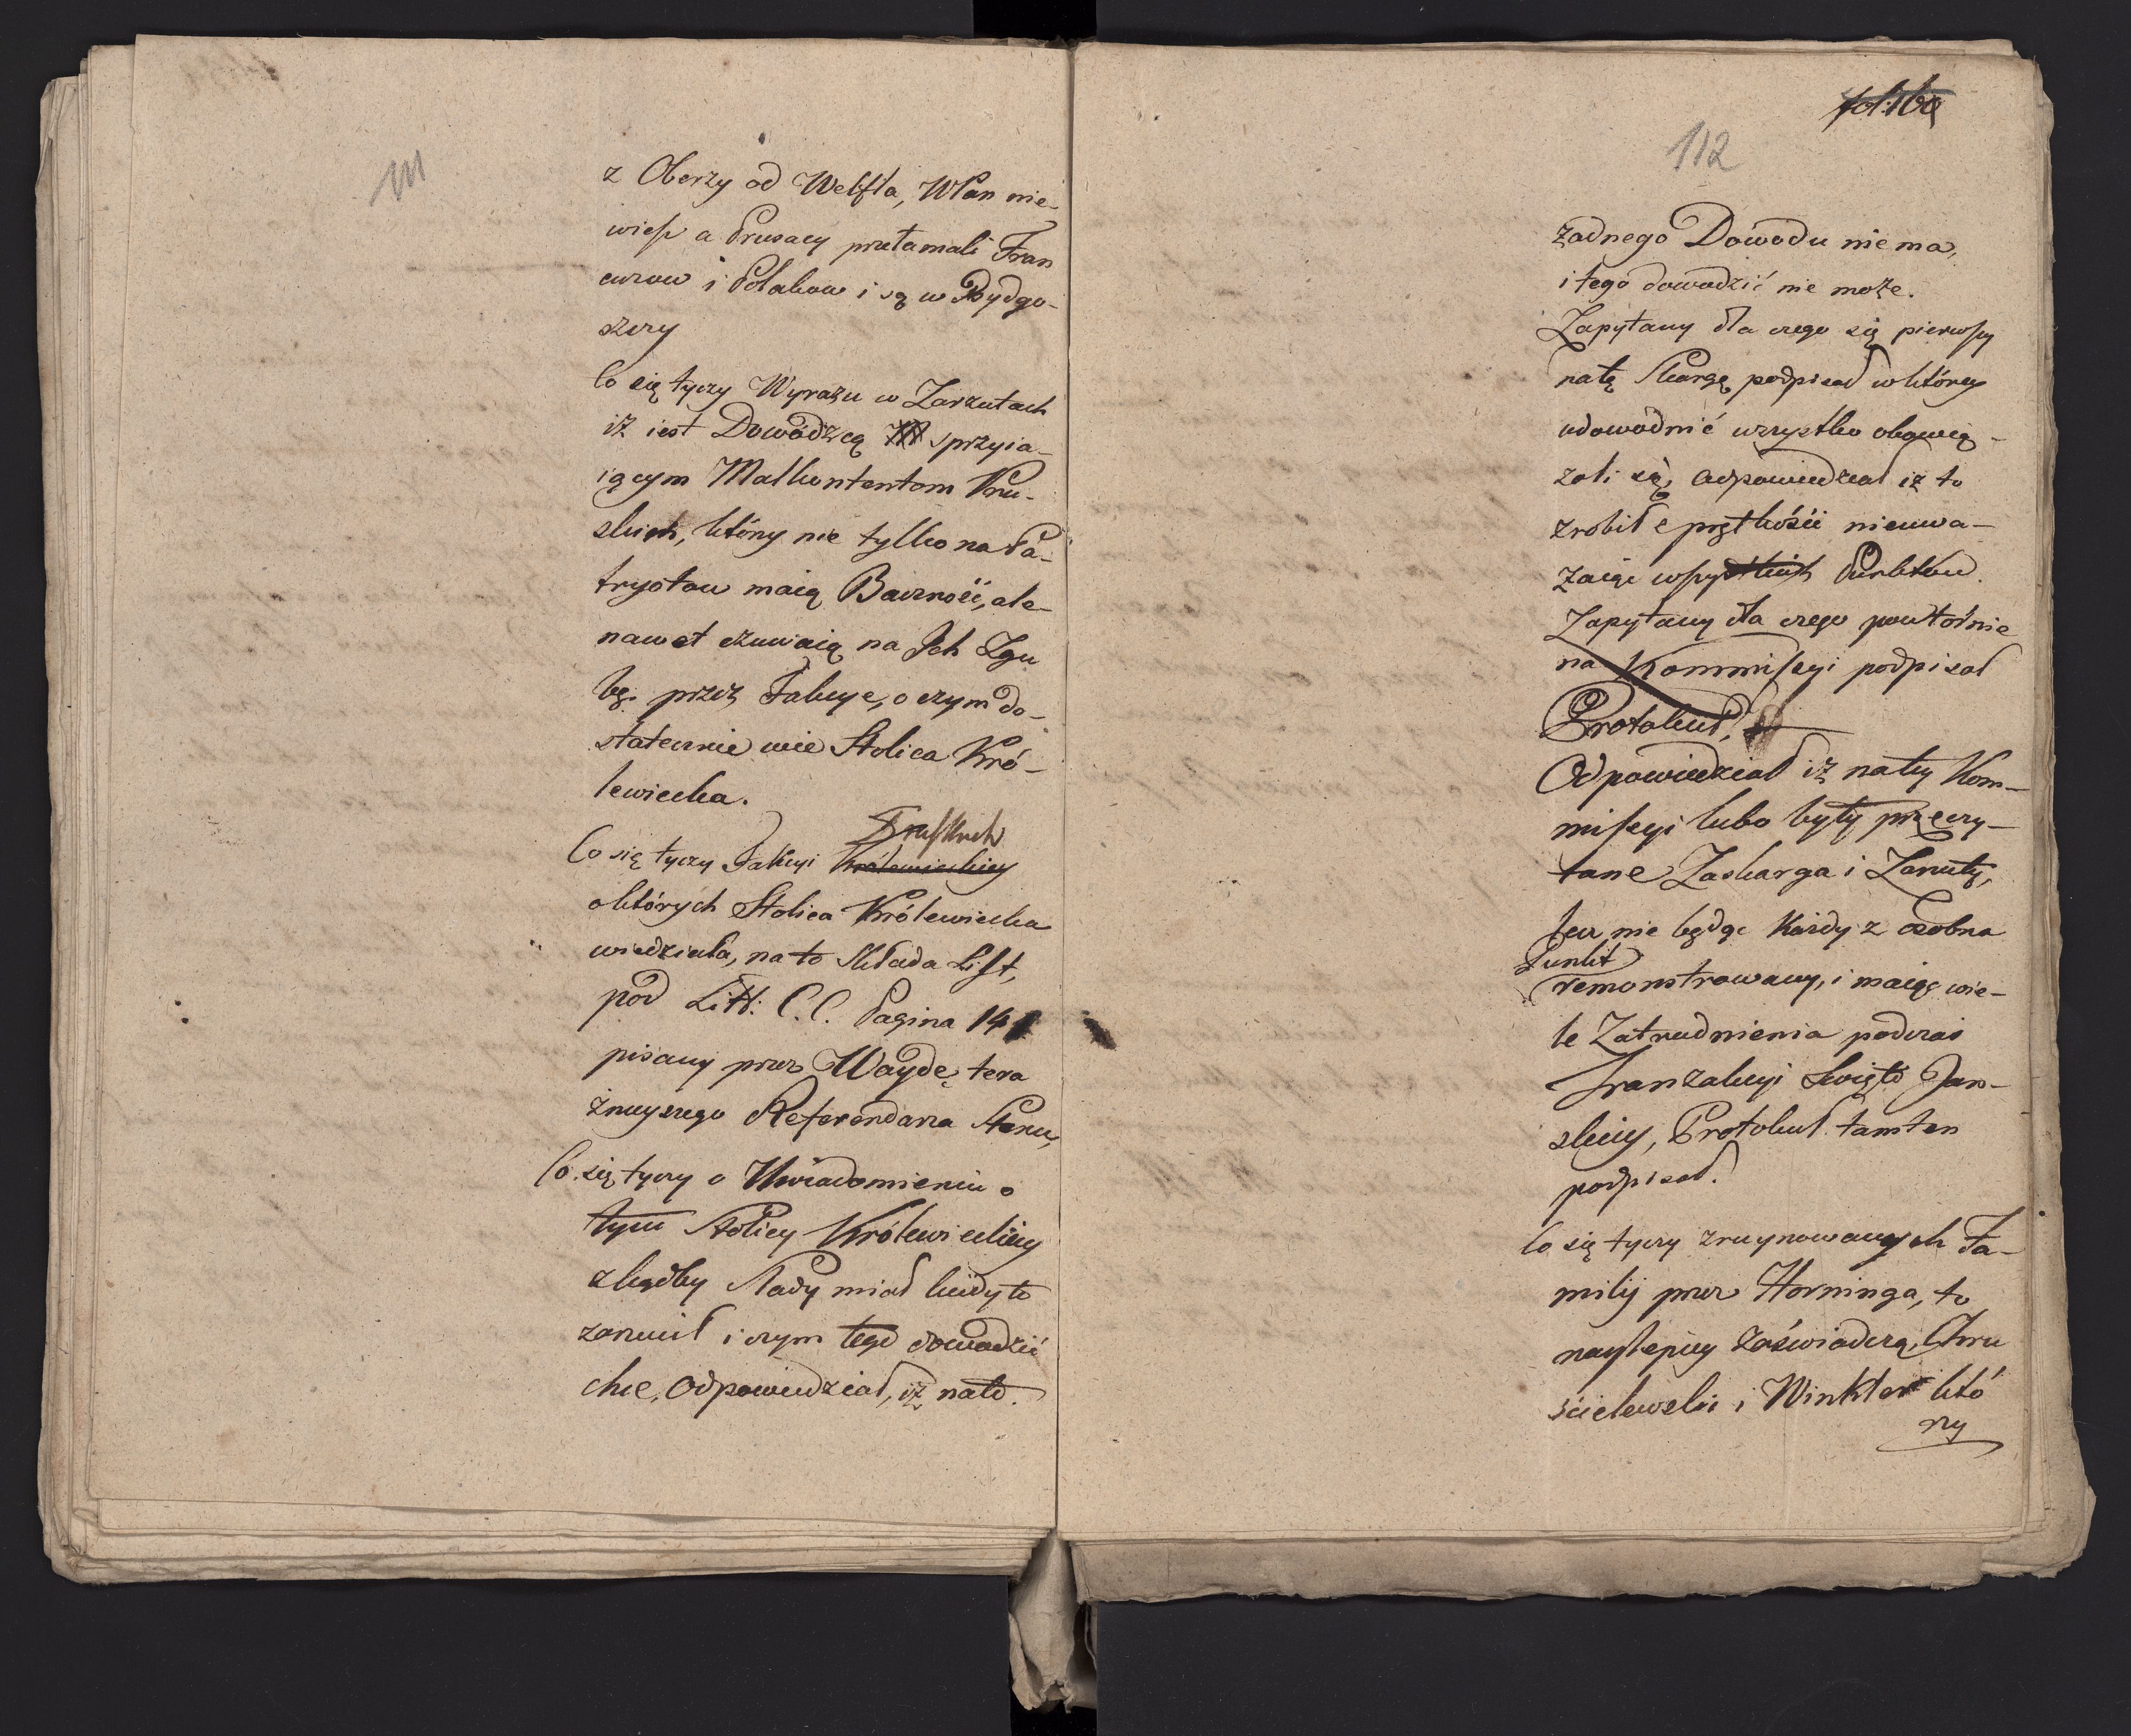 111
z Oberzy od Welfla, WPan nie-
wiesz a Prusacy przełamali Fran
cuzow i Polakow i są w Bydgo-
szczy
Co się tyczy Wyrazu w Zarzutach
iż iest Dowódzcą sprzyia-
iącym Malkontentom Pru-
skich, którzy nie tylko na Pa-
tryotow maią Baczność, ale-
nawet czuwaią na Jch Zgu
bę. przez Fakcye, o czym do-
statecznie wie Stolica Kró-
lewiecka.
Pruskich
Co się tyczy Fakcyi Królewieckiey
o których Stolica Królewiecka
wiedziała, na to składa List,
pod Litt: C.C. Pagina 141
pisany przez Waydę tera
znieyszego Referendarza Stanu,
Co się tyczy o Uwiadomieniu o
tym Stolicy Królewieckiey
zkądby Ślady miał kiedy to
zarzucił i czym tego dowodzić
chce, Odpowiedział, iż na to.
fol: 160
112
żadnego Dowodu nie ma,
i tego dowodzić nie może.
Zapytany dla czego się pierwszy
na tę Skargę podpisał w którey
udowodnić wszystko obowią-
zali się, odpowiedział iż to
zrobił z prętkości nieuwa-
żaiąc wszystkich Punktow.
Zapytany dla czego powtórnie
na Kommissyi podpisał
Protokuł,
Odpowiedział iż na tey Kom-
missyi lubo były przeczy-
tane Zaskarga i Zarzuty,
lecz nie będąc każdy z osobna
Punkt
remonstrowany, i maiąc wie-
le Zatrudnienia podczas
Tranzakcyi Swięto Jan-
skiey, Protokuł tamten
podpisał.
Co się tyczy zruynowanych Fa-
milij przez Horninga, to
naylepiey zaświadczą Chru
ścielewski i Winkler któ
rzy